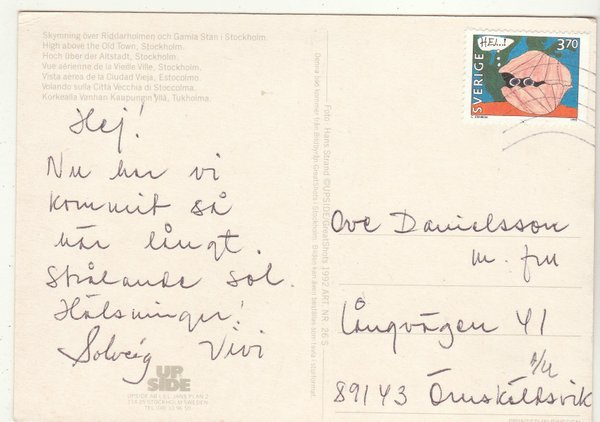 Skymning över Riddarholmen och Gamla Stan i Stockholm.
High above the Old Town, Stockholm.
Hoch über der Altstadt, Stockholm.
Vue aérienne de la Vieille Ville, Stockholm.
Vista aerea de la Ciudad Vieja, Estocolmo.
Volando sulla Città Vecchia di Stoccolma.
Korkealla Vanhan Kaupungin yllä, Tukholma.
Hej!
Nu har vi
kommit så
här långt.
Strålande sol.
Hälsningar!
Solveig Vivi
UP
SIDE
UPSIDE AB
STOCKHOLM/SWEDEN
Foto: Hans Strand ©UPSIDE/GreatShots 1992 ART. NR. 26 S
SVERIGE
3,70
Ove Danielsson
m. fru
Långvägen 41
89143 Örnsköldsvik